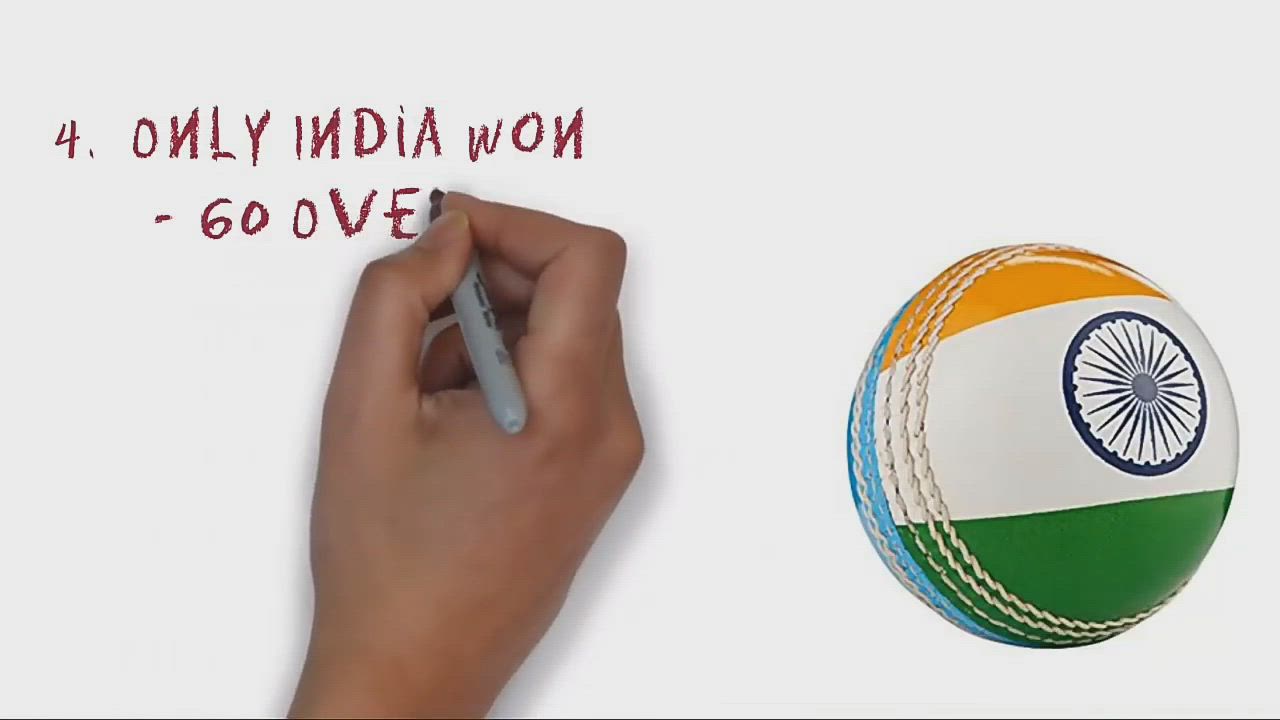 4. ONLY INDiA WON
- 60 OVE